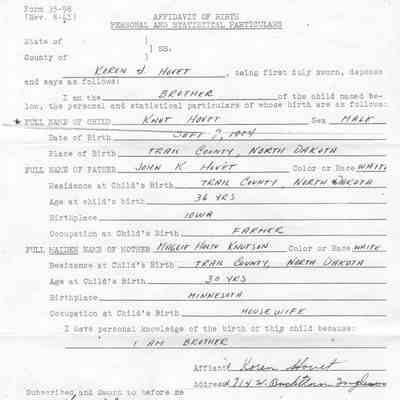 Form 35-98
(Rev. 8-43)
AFFIDAVIT OF BIRTH
PERSONAL AND STATISTICAL PARTICULARS
State of )
) SS.
County of )
KOREN J. HOVET, being first duly sworn, deposes
and says as follows:
I am the BROTHER of the child named be-
low, the personal and statistical particulars of whose birth are as follows:
* FULL NAME OF CHILD KNUT HOVET Sex MALE
Date of Birth SEPT 9, 1904
Place of Birth TRAIL COUNTY, NORTH DAKOTA
FULL NAME OF FATHER JOHN K HOVET Color or Race WHITE
Residence at Child's Birth TRAIL COUNTY, NORTH DAKOTA
Age at child's birth 36 YRS
Birthplace IOWA
Occupation at Child's Birth FARMER
FULL MAIDEN NAME OF MOTHER MAGGIE HOLTE KNUTSON Color or Race WHITE
Residence at Child's Birth TRAIL COUNTY, NORTH DAKOTA
Age at Child's Birth 30 YRS
Birthplace MINNESOTA
Occupation at Child's Birth HOUSEWIFE
I have personal knowledge of the birth of this child because:
I AM BROTHER
Affiant Koren Hovet
Address 714 W.
Subscribed and Sworn to before me